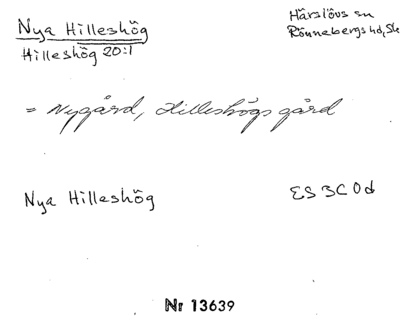 Nya Hilleshög
Hilleshög 20:1
Härslövs sn
Rönnebergs hd, Sk
= Nygård, Hilleshögs gård
Nya Hilleshög
ES 3C0d
Nr 13639